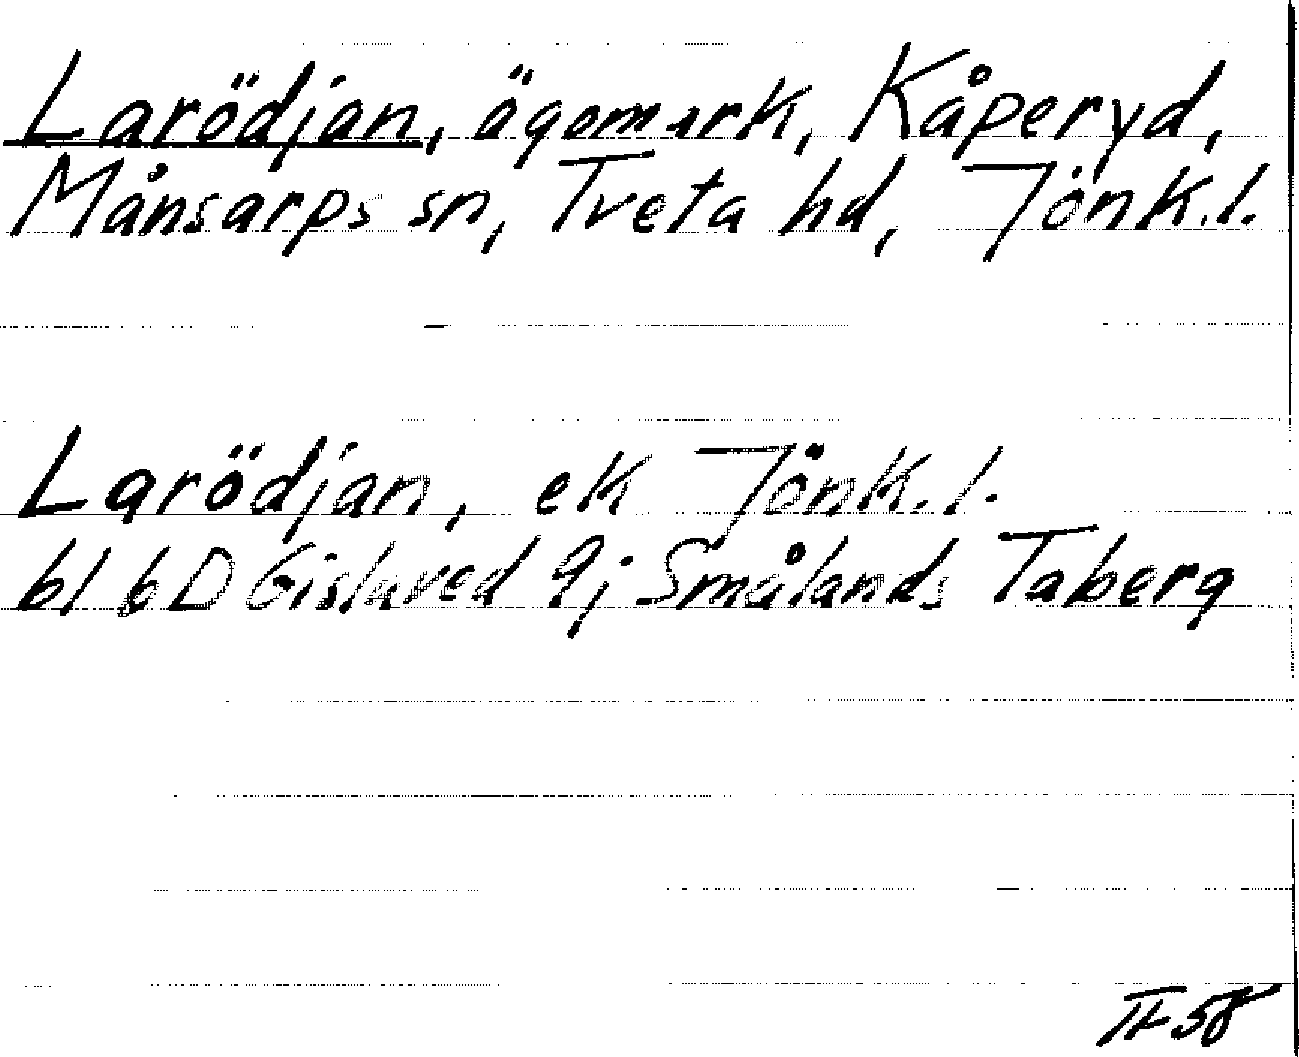 Larödjan, ägomark, Kåperyd,
Månsarps sn, Tveta hd, Jönk.l.
Larödjan, ek Jönk.l.
bl 6D Gislaved 9j Smålands Taberg
TF 58